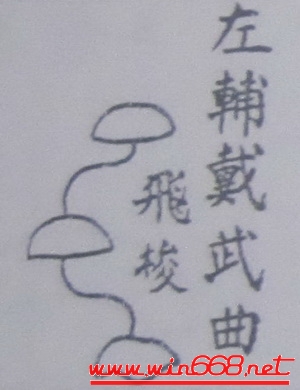 左輔戴武曲
飛梭
www.win668.net